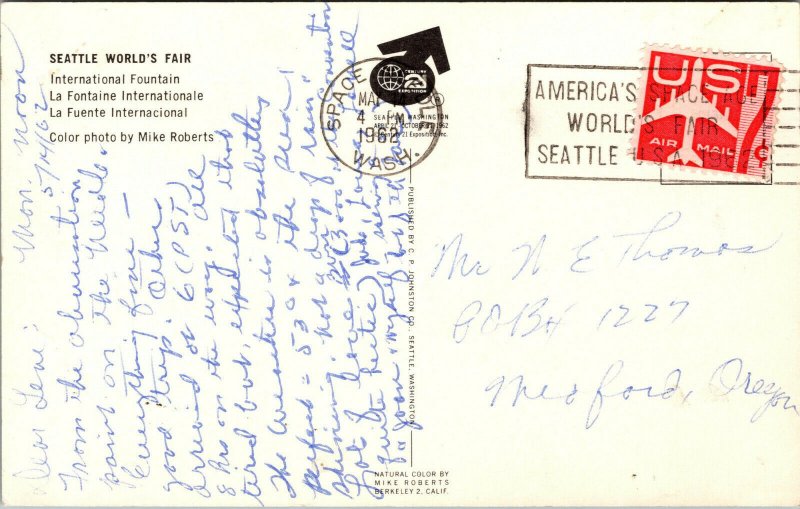 SEATTLE WORLD'S FAIR
International Fountain
La Fontaine Internationale
La Fuente Internacional
Color photo by Mike Roberts
CENTURY
21
EXPOSITION
SEATTLE, WASHINGTON
APRIL 21-OCTOBER 21, 1962
© Century 21 Exposition Inc.
SPACE
MAY
4 PM
1962
WASH.
AMERICA'S SPACE AGE
WORLD'S FAIR
SEATTLE U.S.A. 1962
US
AIR MAIL
Mon. Noon
5/14/62
Dear Leni:
From the observation
point on the Needle.
Everything fine –
good trip. Other
arrived at 6 (PST)
8 hrs on the way. All
tired but, expected that.
The weather is absolutely
perfect = 53° & the sun
shining, not a drop of rain!
Lot of people
quite hectic)
Mr N E Thomas
PO Box 1227
Medford, Oregon
PUBLISHED BY C. P. JOHNSTON CO., SEATTLE, WASHINGTON
NATURAL COLOR BY
MIKE ROBERTS
BERKELEY 2, CALIF.